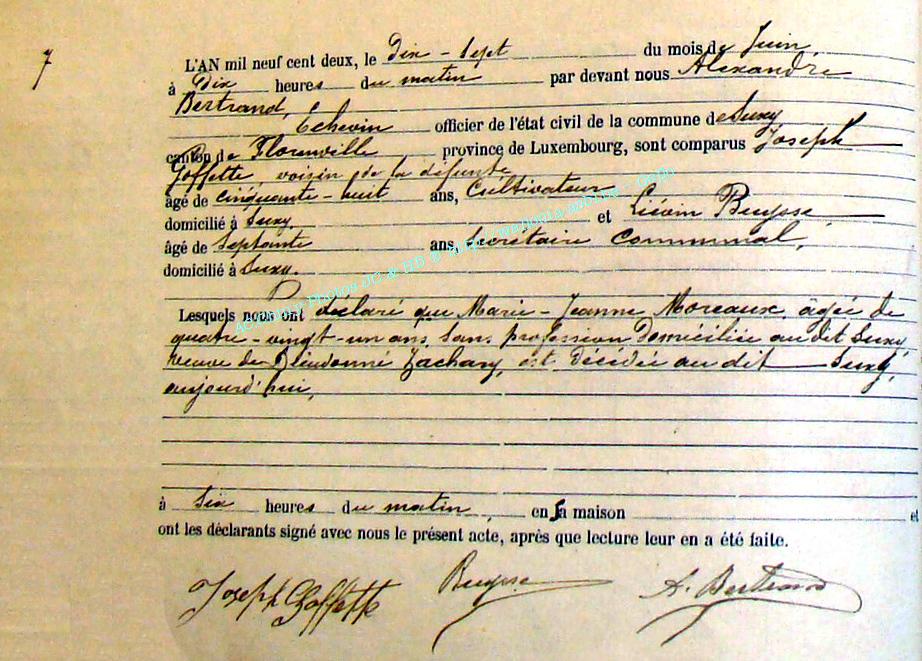 7
L'AN mil neuf cent deux, le Dix-Sept du mois de Juin
à Dix heures du matin par devant nous Alexandre
Bertrand,
Echevin officier de l'état civil de la commune de Suxy
canton de Florenville province de Luxembourg, sont comparus Joseph
Goffette, voisin de la défunte
âgé de cinquante-huit ans, Cultivateur
domicilié à Suxy et Liévin Buysse
âgé de Septante ans Secrétaire Communal,
domicilié à Suxy.
Lesquels nous ont déclaré que Marie-Jeanne Moreaux, âgée de
quatre-vingt-un ans, sans profession Domiciliée au dit Suxy,
veuve de Dieudonné Zachary, est décédée au dit Suxy,
aujourd'hui,
à Six heures du matin, en sa maison et
ont les déclarants signé avec nous le présent acte, après que lecture leur en a été faite.
Joseph Goffette Buysse A. Bertrand